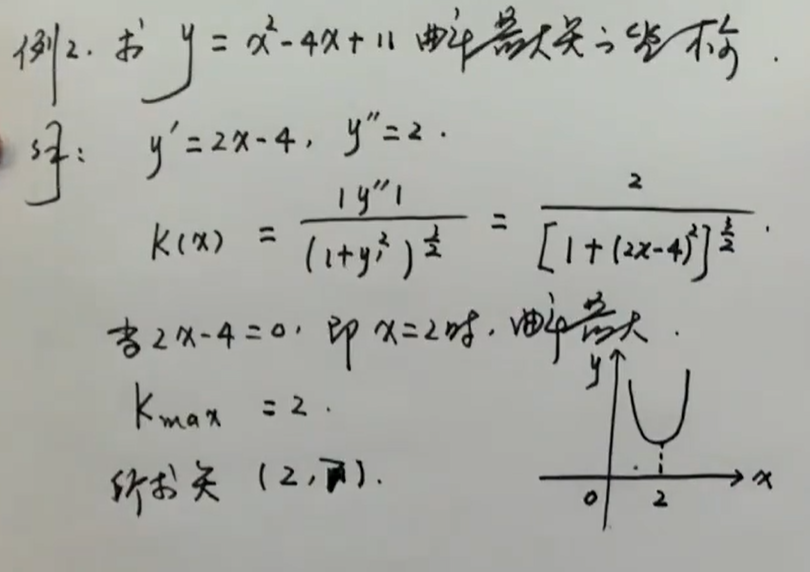 例2. 求 y = x² - 4x + 11 曲率最大点之坐标.
解: y' = 2x-4, y'' = 2.
K(x) = |y''| / (1+y'²)^{3/2} = 2 / [1+(2x-4)²]^{3/2}.
当 2x-4=0, 即 x=2时, 曲率最大.
Kmax = 2.
所求点 (2, 7).
y
0 2 x